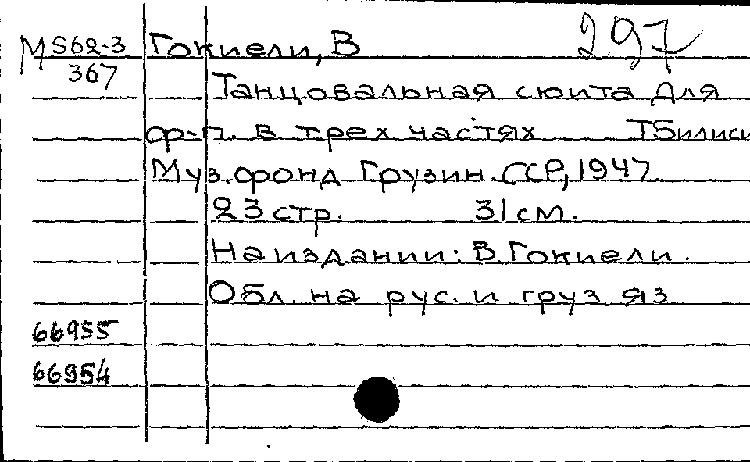 MS62-3 Гокиели, В 297
367
Танцовальная сюита для
ф-п. в трех частях Тбилиси
Муз.фонд Грузин.ССР, 1947
23 стр. 31 см.
На издании: В.Гокиели.
Обл. на рус. и груз яз
66955
66954